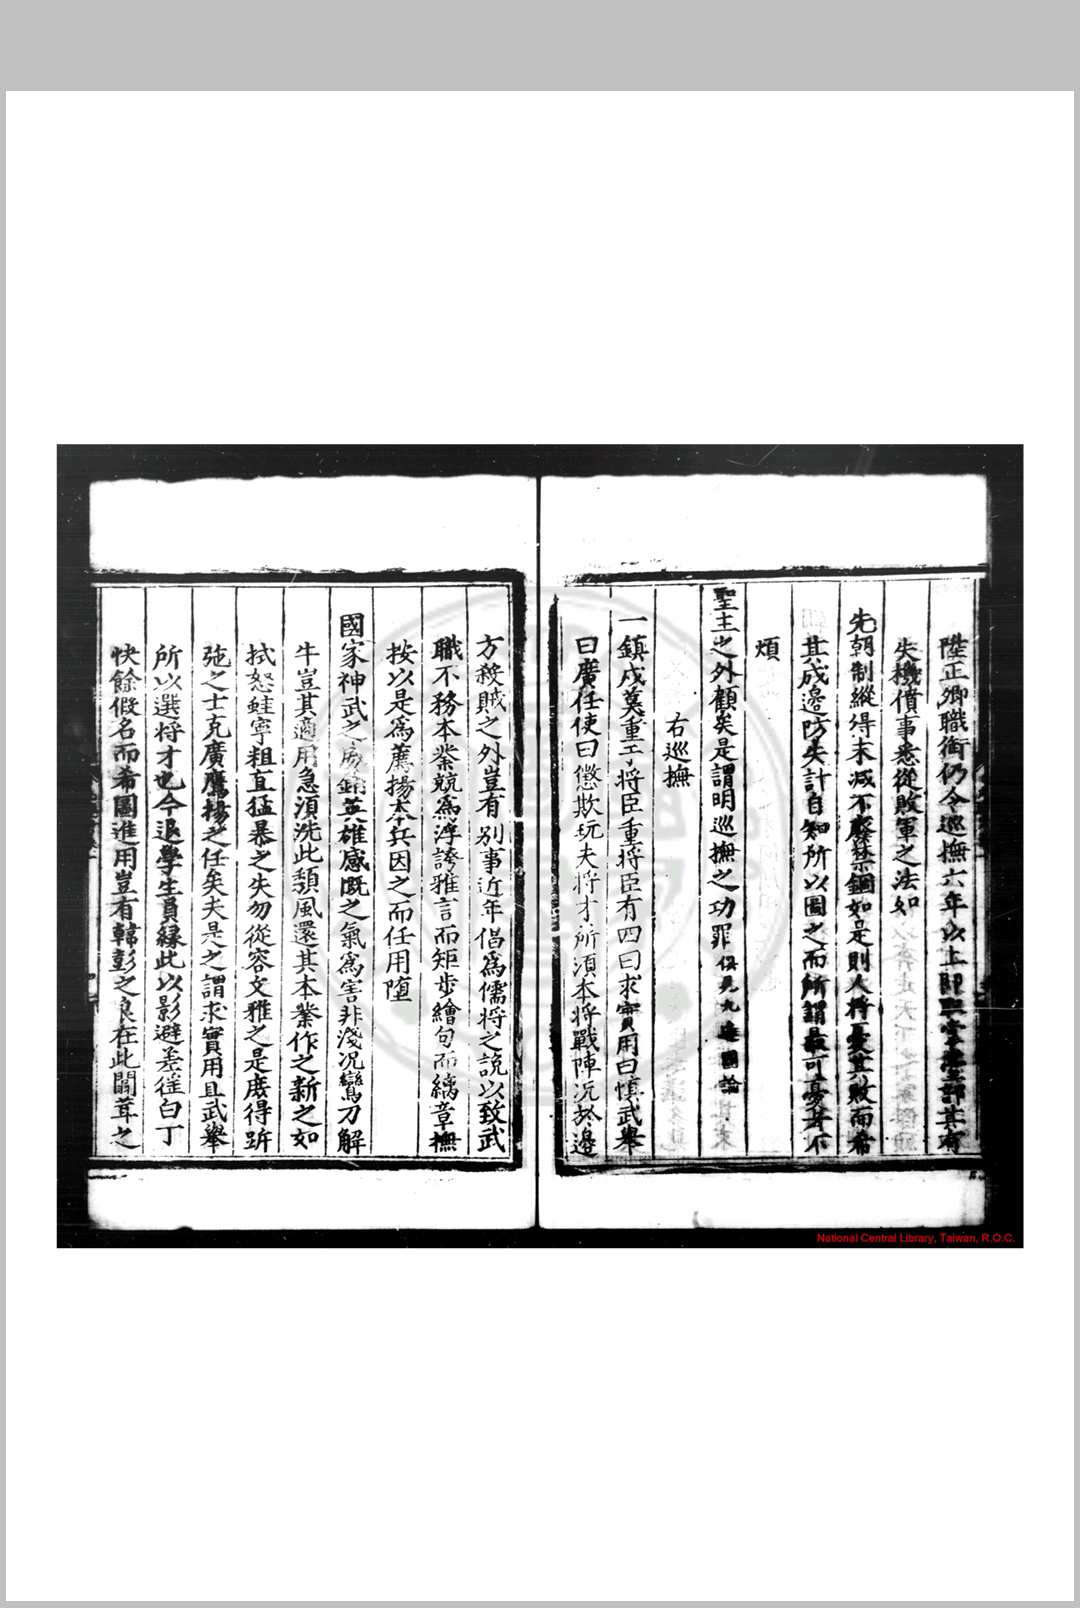 陞正卿職銜仍令巡撫六年以上即
失機僨事悉從敗軍之法如
先朝制縱得末减不廢禁錮如是則人將憂其敗而希
其成邊防失計自知所以圖之而所謂最可憂者不
煩
聖主之外顧矣是謂明巡撫之功罪
右巡撫
一鎮戍莫重于將臣重將臣有四曰求實用曰慎武舉
曰廣任使曰懲欺玩夫將才所湏本將戰陣况於邊
方殺賊之外豈有别事近年倡為儒將之説以致武
職不務本業競為浮誇雅言而矩步繪句而絺章撫
按以是為薦揚本兵因之而任用墮
國家神武之 銷英雄感慨之氣為害非淺况鸞刀解
牛豈其適用急湏洗此頽風還其本業作之新之如
拭怒蛙寧粗直猛暴之失勿從容文雅之是庶得跅
弛之士克廣鷹揚之任矣夫是之謂求實用且武舉
所以選將才也今退學生員緣此以影避差徭白丁
快餘假名而希圖進用豈有韓彭之良在此闒茸之
National Central Library, Taiwan, R.O.C.